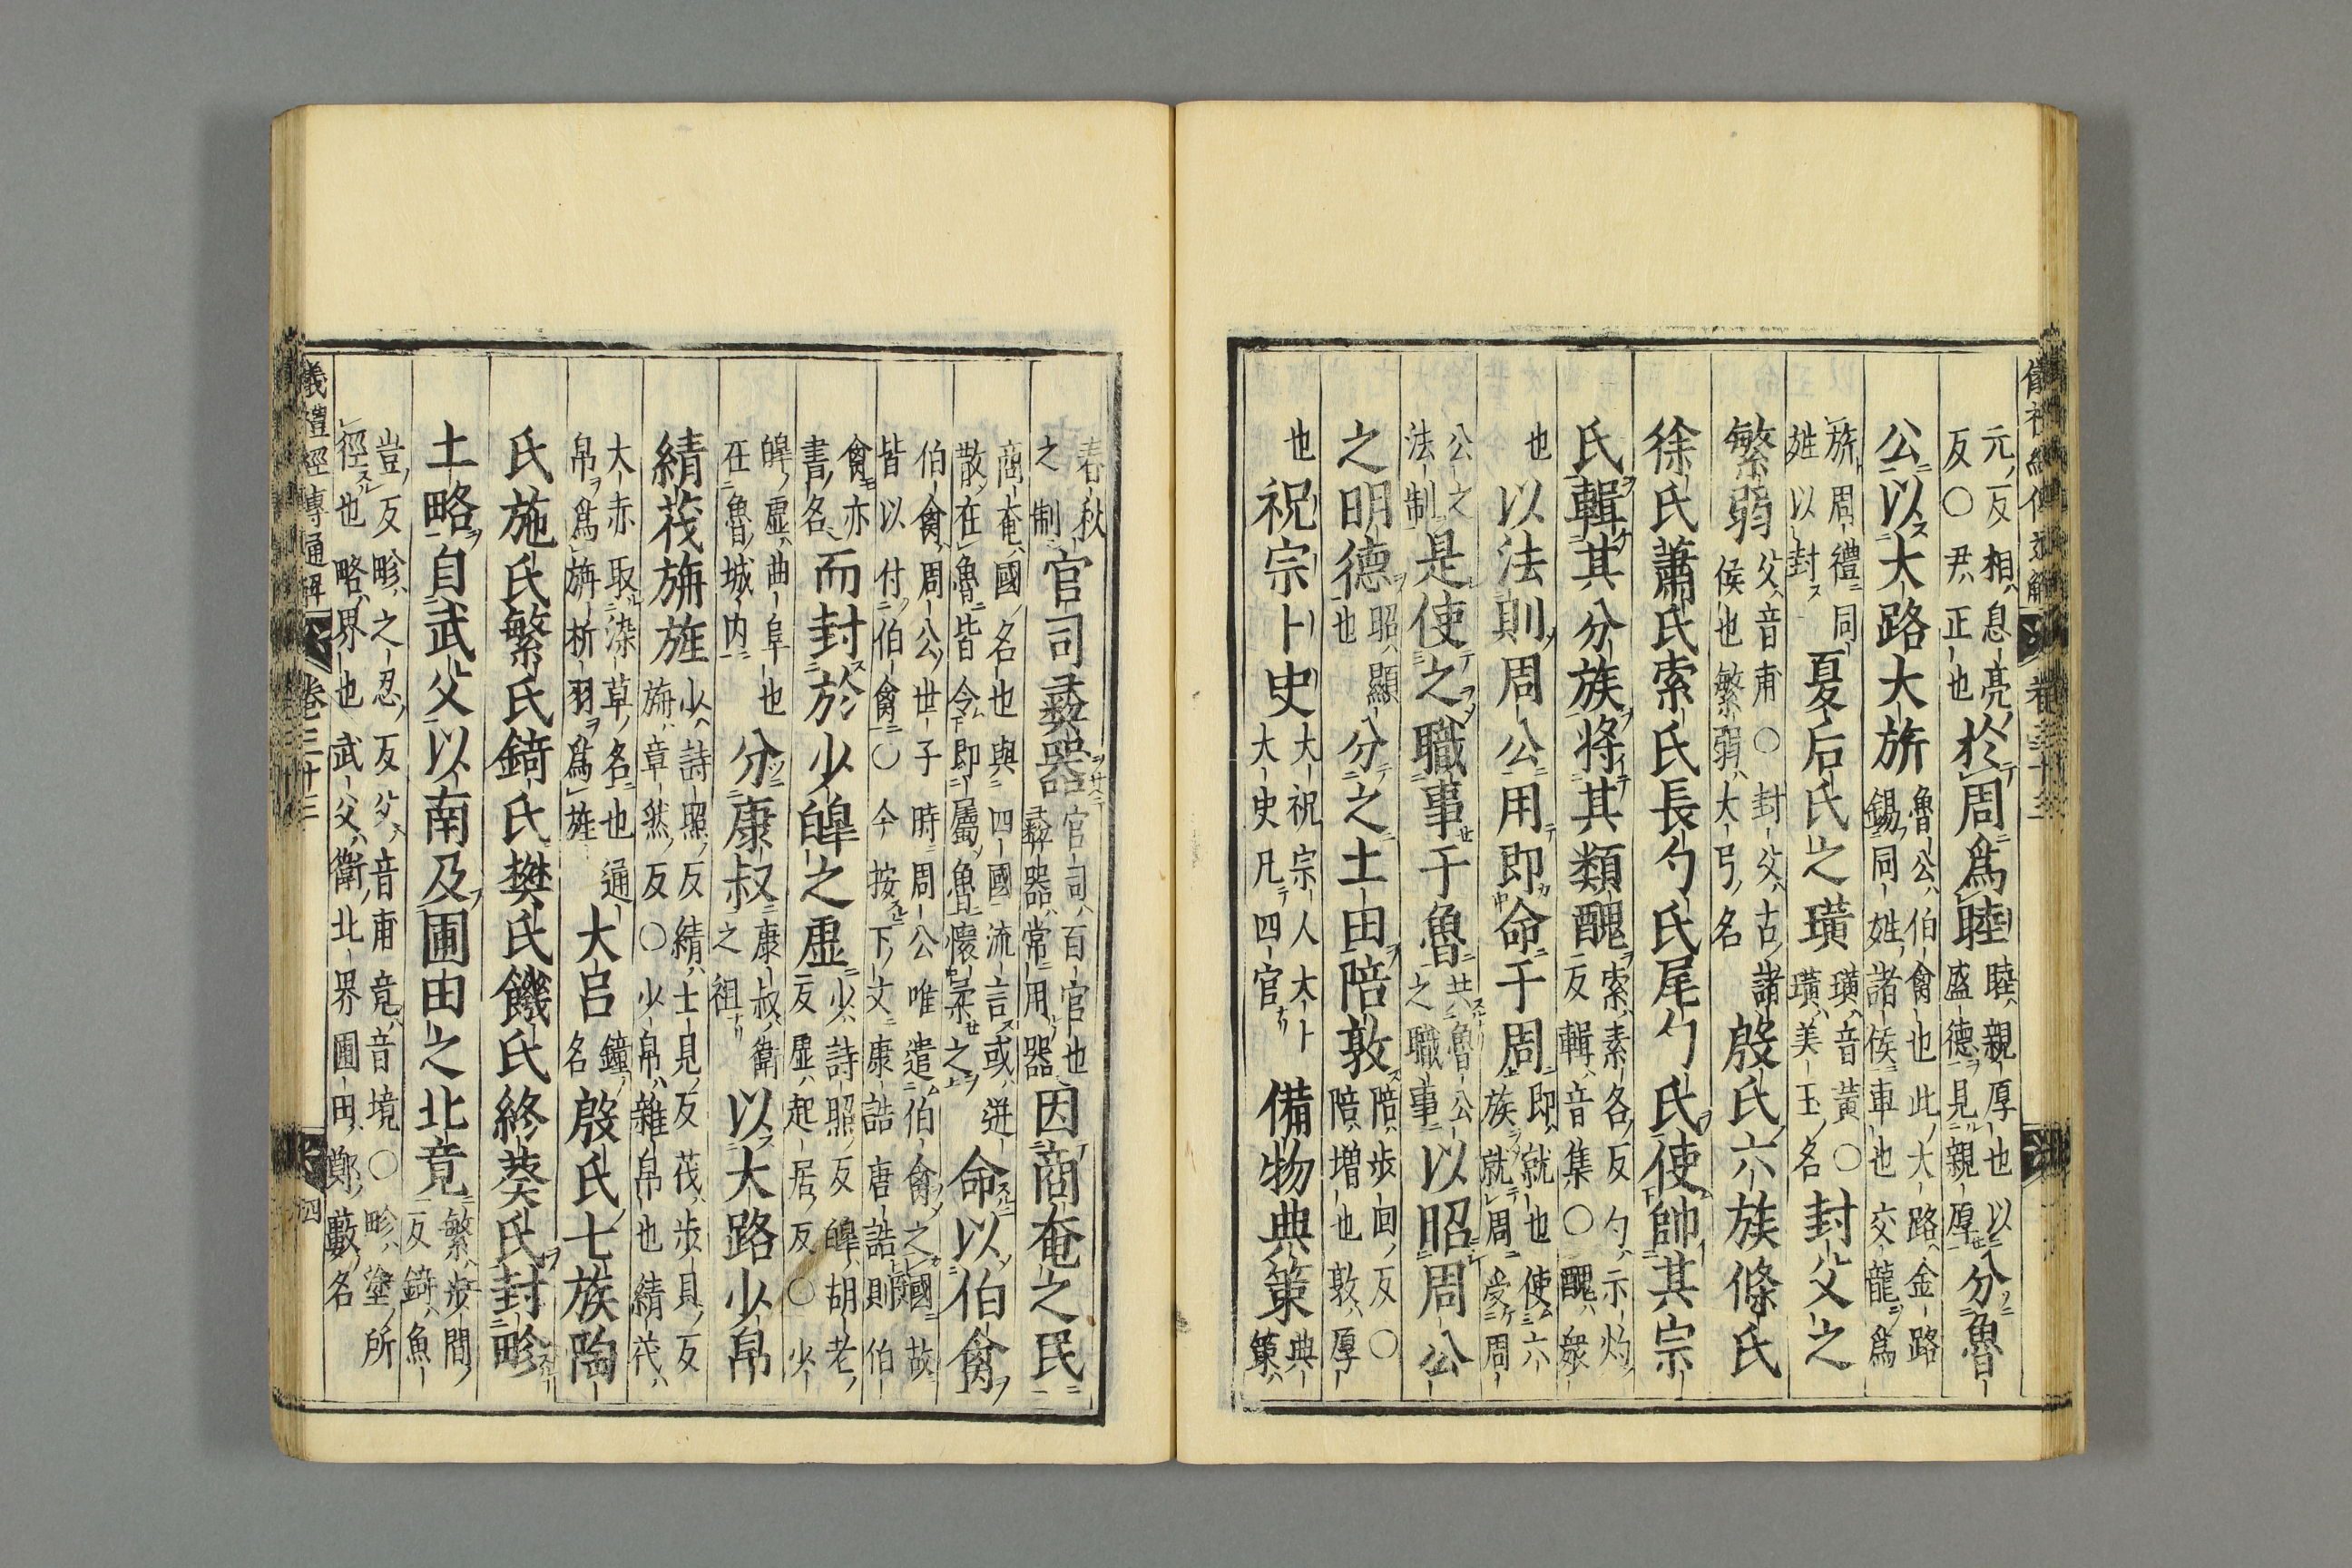 儀禮經傳通解 卷三十三
元反相息亮反○尹正也於周爲睦睦親厚也以盛德見親厚分魯
公以大路大旂魯公伯禽也此大路金路錫同姓諸侯車也交龍爲
旂周禮同姓以封夏后氏之璜璜音黃○璜美玉名封父之
繁弱父音甫○封父古諸侯也繁弱大弓名殷氏六族條氏
徐氏蕭氏索氏長勺氏尾勺氏使帥其宗
氏輯其分族將其類醜索素各反勺示灼反輯音集○醜衆
也以法則周公用即命于周即就也使六族就周受周
公之法制是使之職事于魯共魯公之職事以昭周公
之明德昭顯也分之土田陪敦陪步回反○陪增也敦厚
也祝宗卜史大祝宗人大卜大史凡四官備物典策典策
春秋之制官司彝器官司百官也彝器常用器因商奄之民
商奄國名也與四國流言或迸散在魯皆令即屬魯懷柔之命以伯禽
伯禽周公世子時周公唯遣伯禽之國故皆以付伯禽○今按下文康誥唐誥則伯
禽亦書名而封於少皞之虛少詩照反皞胡老反虛起居反○少
皞虛曲阜也在魯城内分康叔康叔衛之祖以大路少帛
綪茷旃旌少詩照反綪士見反茷步貝反旃章然反○少帛雜帛也綪茷
大赤取染草名也通帛爲旃析羽爲旌大呂鐘名殷氏七族陶
氏施氏繁氏錡氏樊氏饑氏終葵氏封畛
土略自武父以南及圃田之北竟繁步間反錡魚
豈反畛之忍反父音甫竟音境○畛塗所徑也略界也武父衛北界圃田鄭藪名
儀禮經傳通解 卷三十三 四